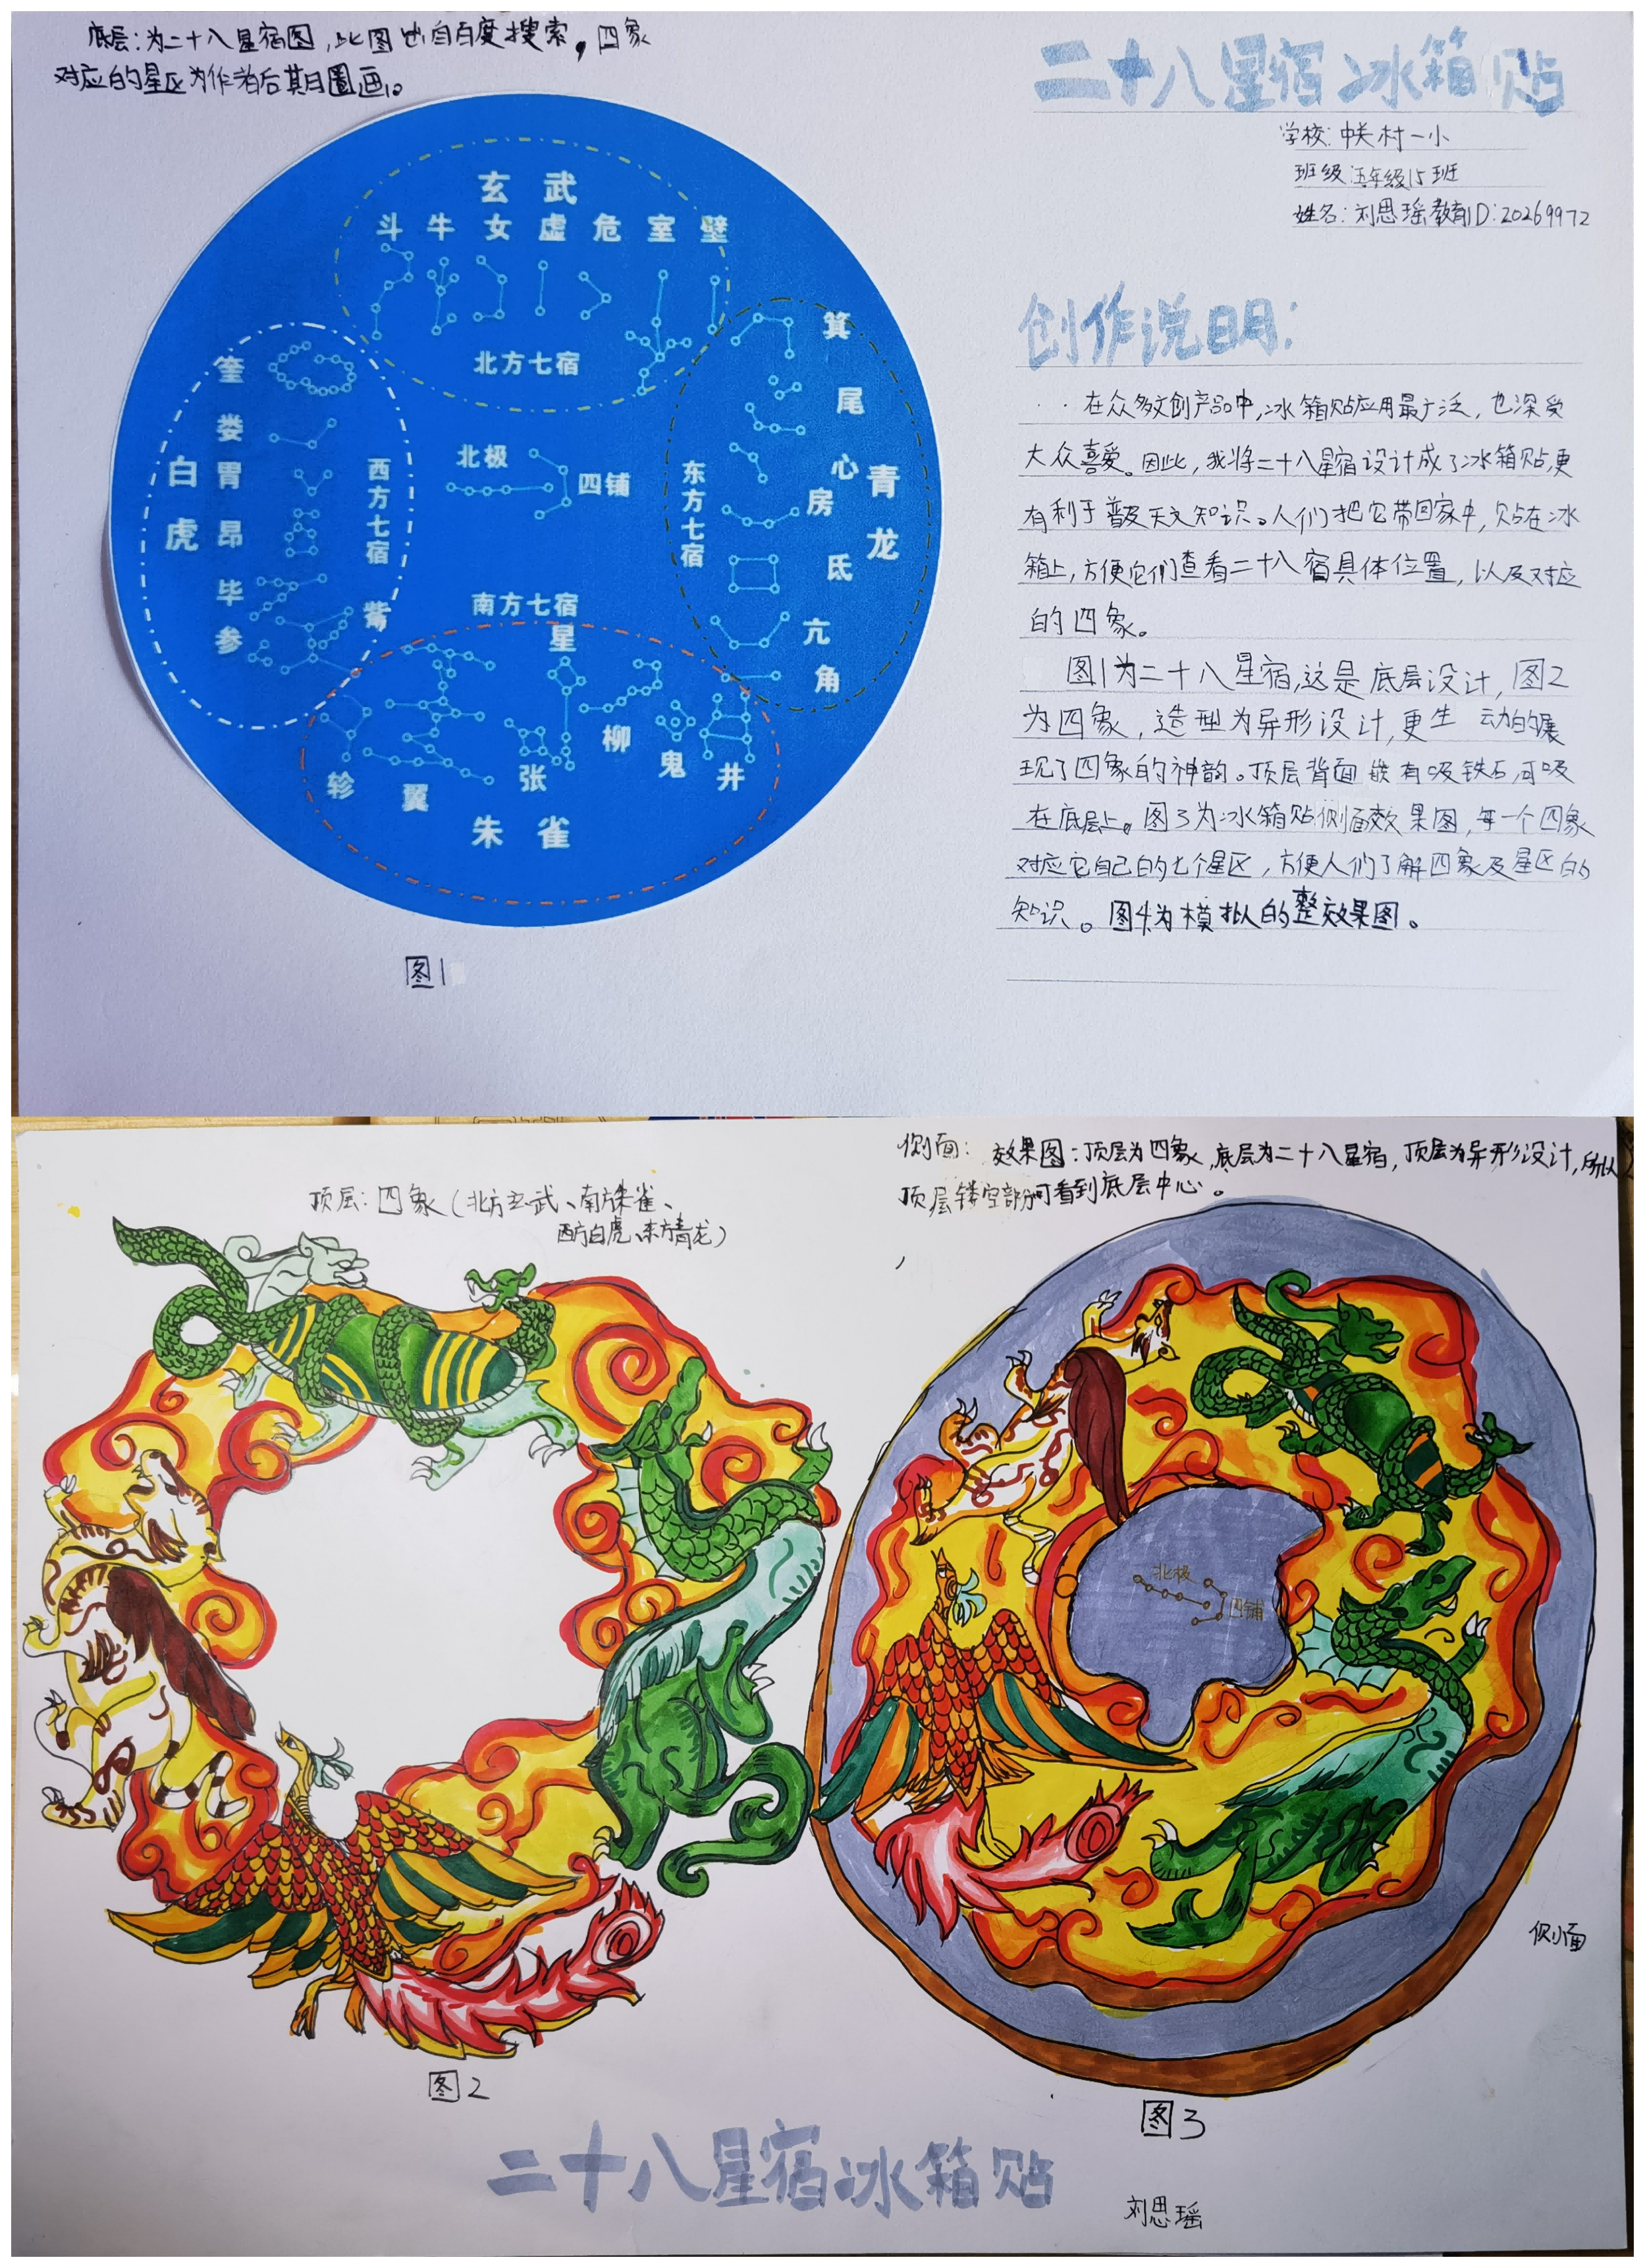 底层:为二十八星宿图,此图出自百度搜索,四象
对应的星区为作者后其日圈画。
二十八星宿冰箱贴
学校:中关村一小
班级五年级15班
姓名:刘思瑶教育ID:20269972
玄武
斗牛女虚危室壁
北方七宿
白虎
奎
娄
胃
昂
毕
参
觜
西方七宿
北极
四铺
东方七宿
箕
尾
心
房
氐
亢
角
青龙
南方七宿
星
轸
翼
张
柳
鬼
井
朱雀
图1
创作说明:
在众多文创产品中,冰箱贴应用最广泛,也深受
大众喜爱。因此,我将二十八星宿设计成了冰箱贴,更
有利于普及天文知识。人们把它带回家中,贴在冰
箱上,方便它们查看二十八宿具体位置,以及对应
的四象。
图1为二十八星宿,这是底层设计,图2
为四象,造型为异形设计,更生动的展
现了四象的神韵。顶层背面嵌有吸铁石,可吸
在底层上。图3为冰箱贴侧面效果图,每一个四象
对应它自己的七个星区,方便人们了解四象及星区的
知识。图4为模拟的整效果图。
顶层:四象(北方玄武、南方朱雀、
西方白虎、东方青龙)
图2
侧面:效果图:顶层为四象,底层为二十八星宿,顶层为异形设计,所以
顶层镂空部分可看到底层中心。
北极
四铺
侧面
图3
二十八星宿冰箱贴
刘思瑶